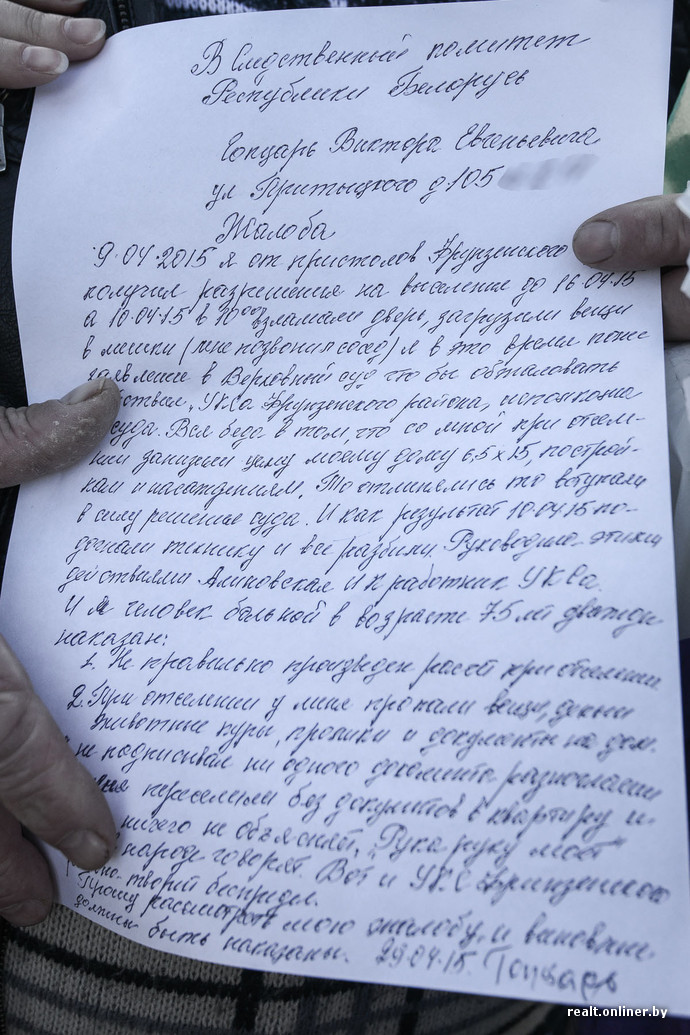 В Следственный комитет
Республики Белорусь
Гопцарь Виктора Евгеньевича
ул Притыцкого д 105
Жалоба
9.04.2015 я от пристолов Фрунзенского
получил разрешения на выселение до 16.04.15
а 10.04.15 в 10 00 взламали дверь, загрузили вещи
в мешки (мне позвонил сосед) я в это время понес
заявление в Верховный суд что бы обжаловать
УКСа Фрунзенского района, исполкома
суда. Вся беда в том, что со мной при отсел-
нии занизили цену моему дому 6,5 х 15, построй-
кам и насаждениям. То отменялись то вступали
в силу решение суда. И как результат 10.04.15 по-
догнали технику и всё разбили. Руководила этими
действиями Алиновская И К работник УКСа.
И я человек больной в возрасте 75 лет дважды
наказан:
1. Не правильно произведен расчет при отселении.
2. При отселении у меня пропали вещи, деньги
животные куры, кролики и документы на дом.
не подписывал ни одного документа разногласии
переселили без документов в квартиру и
ничего не объясняя. "Рука руку моет"
народе говорят. Вот и УКС Фрунзенского
творит беспредел.
Прошу рассмотреть мою жалобу и виновные
должны быть наказаны. 29.04.15. Гопцарь
realt.onliner.by